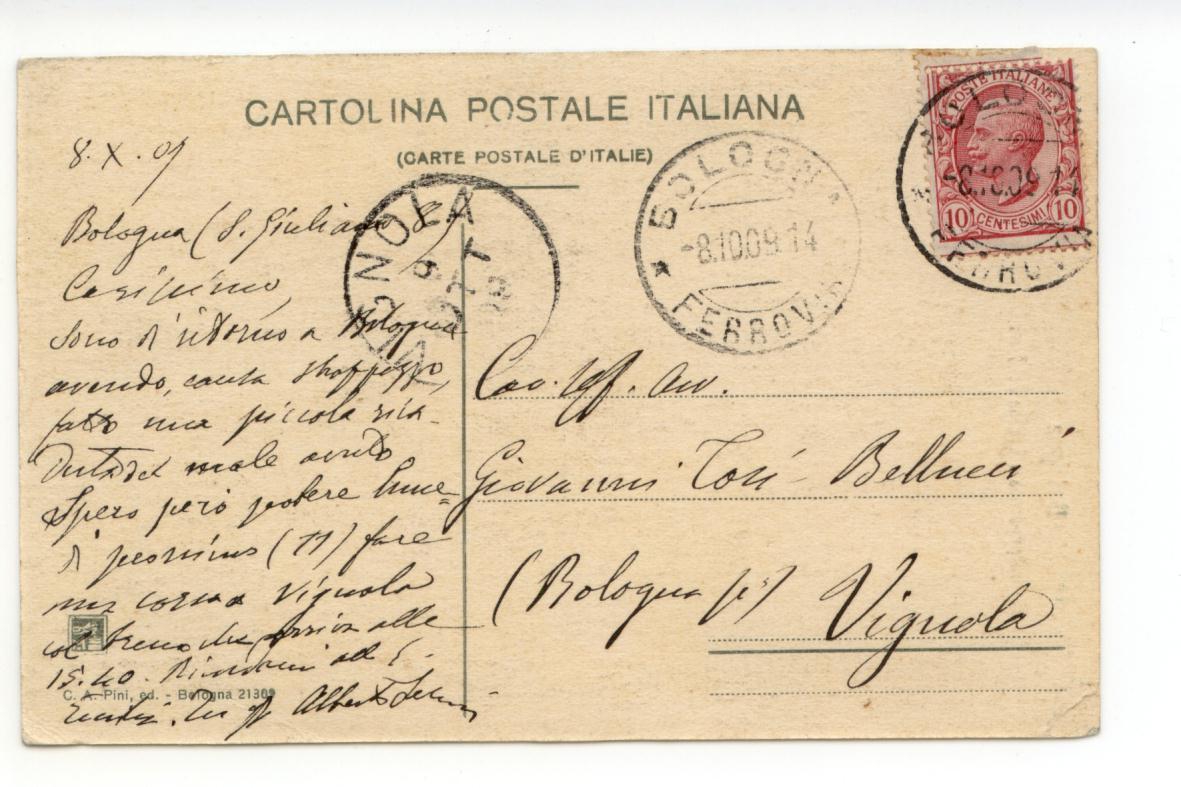 CARTOLINA POSTALE ITALIANA
(CARTE POSTALE D'ITALIE)
POSTE ITALIANE
10 CENTESIMI 10
-8.10.09.14
FERROVIA
* BOLOGNA
-8.10.09.14
FERROVIA
VIGNOLA
9
OTT
09
8.X.09
Bologna (S. Giuliano 8)
Carissimo,
sono di ritorno a Bologna
avendo, causa strapazzo,
fatto una piccola rica-
duta del male avuto
Spero però potere lune=
dì prossimo (11) fare
una corsa a Vignola
col treno che arriva alle
15.40.
Alberto
C. A. Pini, ed. - Bologna 21309
Cav. Uff. Avv.
Giovanni Tosi-Bellucci
(Bologna p) Vignola